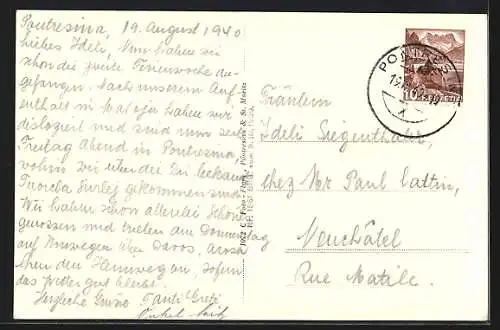 Pontresina, 19. August 1940
Liebes Ideli, Nun haben wir
schon die zweite Ferienwoche an-
gefangen. Nach unserem Auf-
enthalt in Maloja haben wir
disloziert und sind nun seit
Freitag Abend in Pontresina,
wohin wir über die
Fuorcla Surlej gekommen sind.
Wir haben schon allerlei Schönes
genossen und treten am Donnerstag
auf Umwegen über Davos, Arosa
den Heimweg an, sofern
das Wetter gut bleibt.
Herzliche Grüsse Tanti Greti
Onkel
Fräulein
Ideli Siegenthaler,
chez Mr Paul Cattin,
Neuchâtel
Rue Matile.
HELVETIA